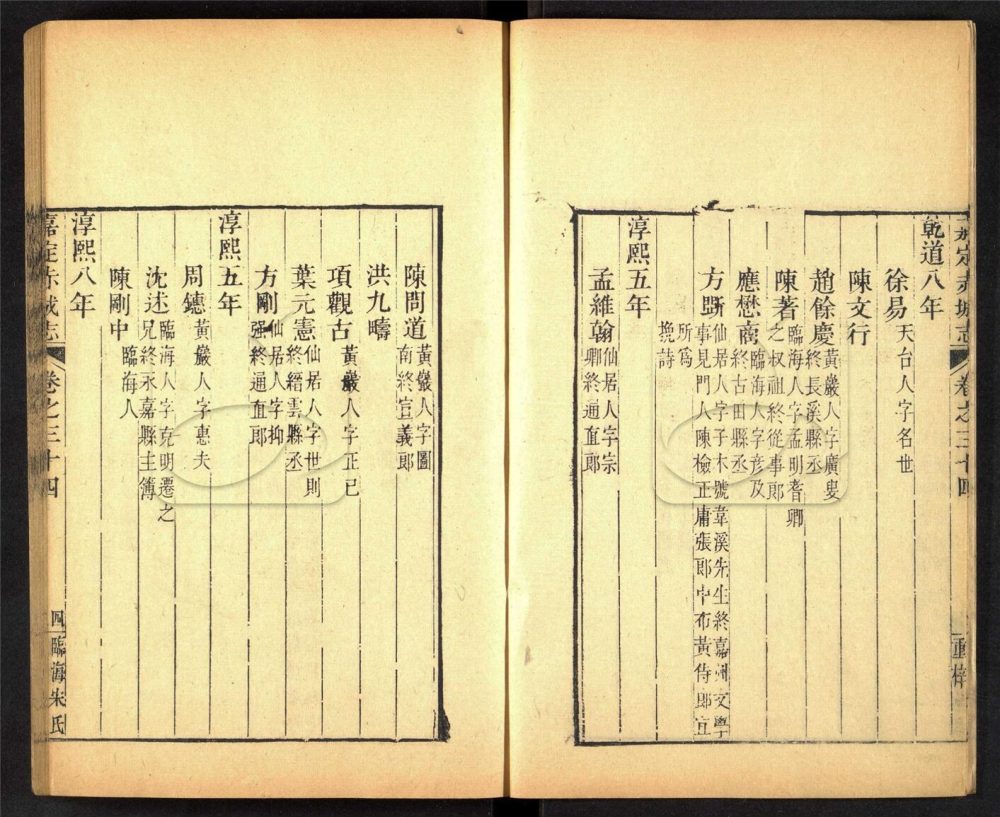 嘉定赤城志
卷之三十四
重梓
乾道八年
徐易天台人字名世
陳文行
趙餘慶黃巖人字廣叟
終長溪縣丞
陳著臨海人字孟明耆卿
之叔祖終從事郎
應懋商臨海人字彥及
終古田縣丞
方斲仙居人字子木號韋溪先生終嘉州文學
事見門人陳檢正庸張郎中布黃侍郎宜
所爲
挽詩
淳熙五年
孟維翰仙居人字宗
卿終通直郎
陳問道黃巖人字圖
南終宣義郎
洪九疇
項觀古黃巖人字正己
葉元憲仙居人字世則
終縉雲縣丞
方剛仙居人字抑
强終通直郎
淳熙五年
周鐩黃巖人字惠夫
沈迋臨海人字克明遷之
兄終永嘉縣主簿
陳剛中臨海人
淳熙八年
嘉定赤城志
卷之三十四
四
臨海宋氏